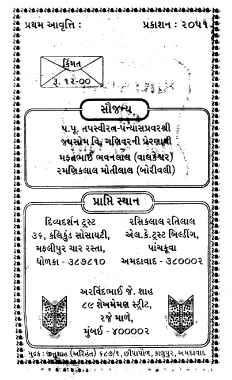 પ્રથમ આવૃત્તિ : પ્રકાશન : ૨૦૫૧
કિંમત
રૂ. ૧૨-૦૦
સૌજન્ય
પ.પૂ. તપસ્વીરત્ન-પંન્યાસપ્રવરશ્રી
જયસોમ વિ. ગણિવરની પ્રેરણાથી
મફતભાઈ ભવનલાલ (વાલકેશ્વર)
રમણિકલાલ મોતીલાલ (બોરીવલી)
પ્રાપ્તિ સ્થાન
દિવ્યદર્શન ટ્રસ્ટ
૩૬, કલિકુંડ સોસાયટી,
મફલીપુર ચાર રસ્તા,
ધોળકા - ૩૮૭૮૧૦
રસિકલાલ રતિલાલ
એલ.કે.ટ્રસ્ટ બિલ્ડીંગ,
પાંચકૂવા
અમદાવાદ - ૩૮૦૦૦૨
અરવિંદભાઈ જે. શાહ
૮૯ શેખમેમણ સ્ટ્રીટ,
૨જે માળે,
મુંબઈ - ૪૦૦૦૦૨
મુદ્રક : જીતુશાહ (અરિહંત) ૬૮૭/૧, છીપાપોળ, કાલુપુર, અમદાવાદ